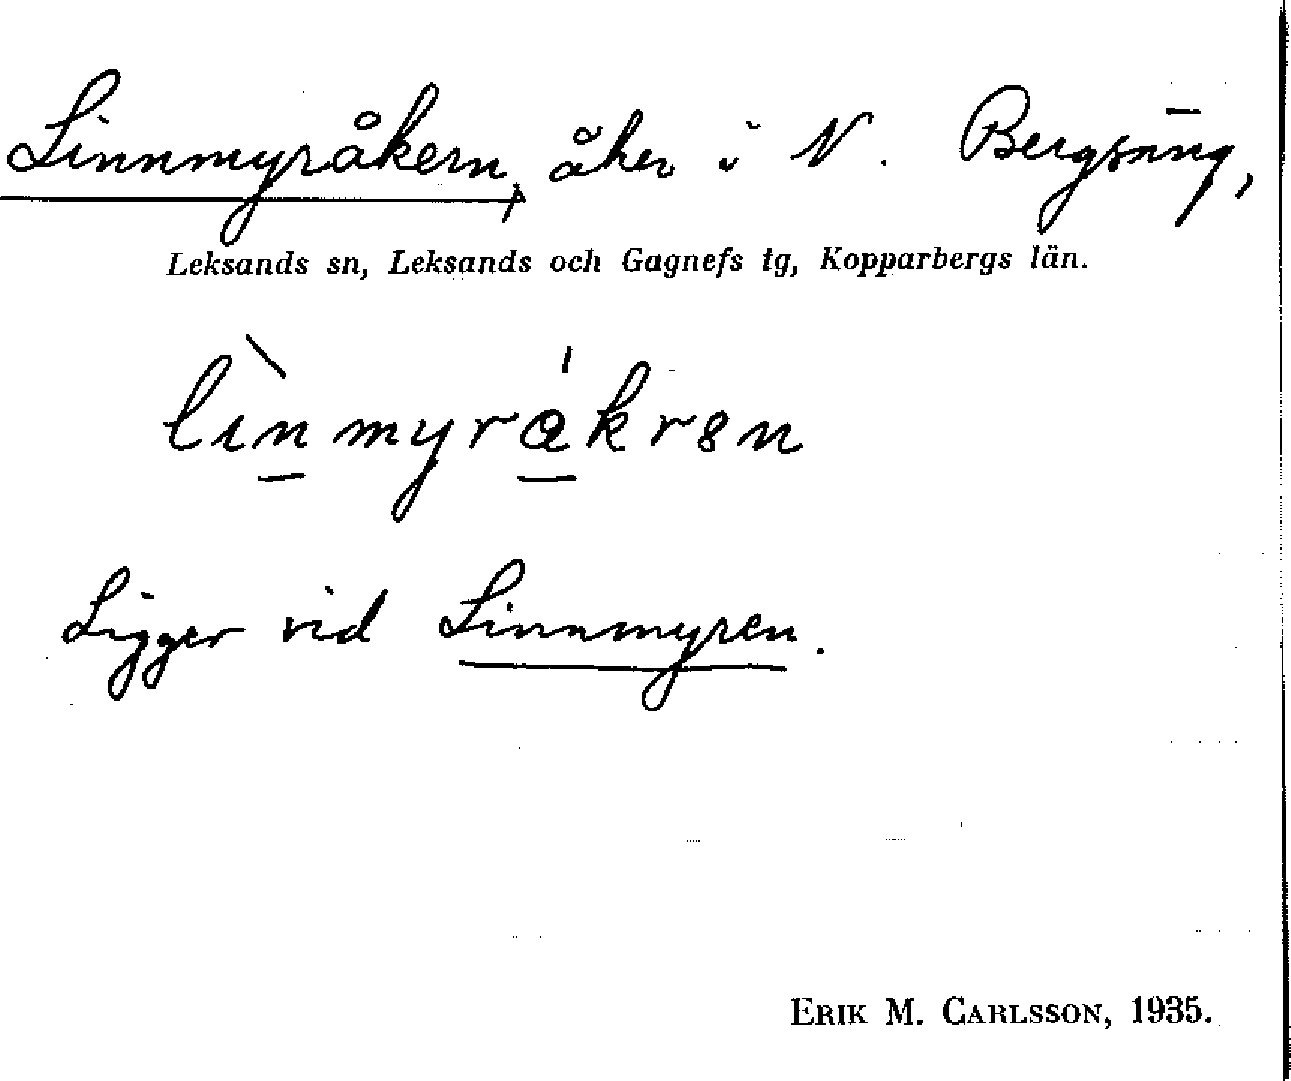 Linnmyråkern, åker i N. Bergsäng,
Leksands sn, Leksands och Gagnefs tg, Kopparbergs län.
Ligger vid Linnmyren.
ERIK M. CARLSSON, 1935.